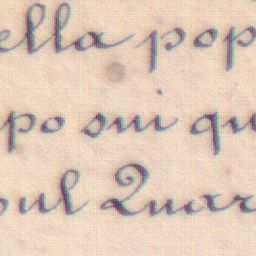 ella pop
po sui qu
oul Quar